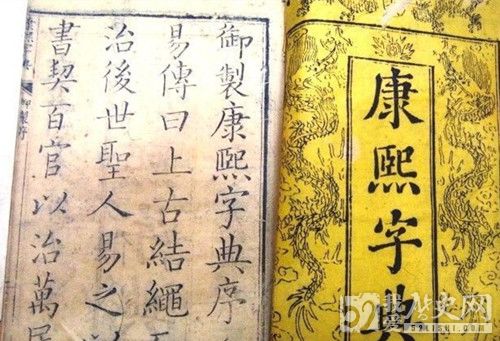 康熙字典
御製康熙字典序
易傳曰上古結繩而
治後世聖人易之以
書契百官以治萬民
御製序
52我爱历史网